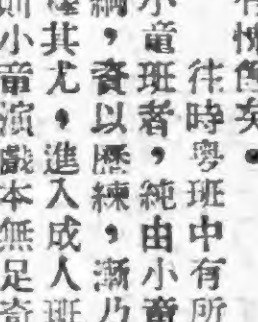 有愧色矣。
往時粵班中有所
小童班者，純由小童
，資以歷練，漸乃
其尤，進入成人班
則小童演戲本無足奇